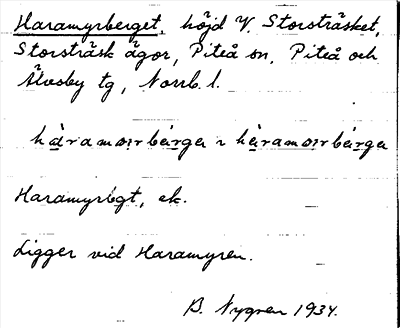 Haramyrberget, höjd V. Storsträsket,
Storsträsk ägor, Piteå sn, Piteå och
Älvsby tg, Norrb. l.
Haramyrbgt, ek.
Ligger vid Haramyren.
B. Nygren 1934.